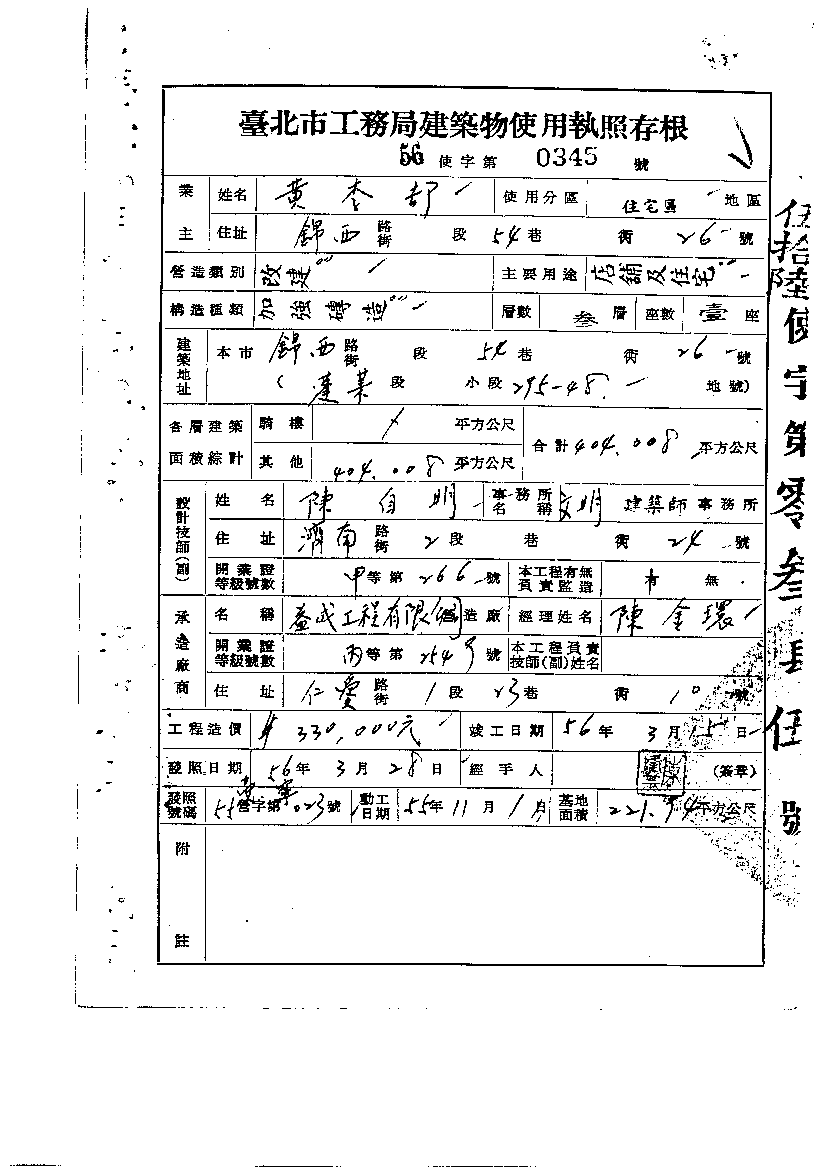 臺北市工務局建築物使用執照存根
56 使字第 0345 號
業主 姓名 黃李却 使用分區 住宅區 地區
住址 錦西 路街 段 54巷 衖 26 號
營造類別 改建 主要用途 店舖及住宅
構造種類 加強磚造 層數 叁層 座數 壹座
建築地址 本市 錦西 路街 段 54巷 衖 26 號
(蓬萊段 小段 295-48 地號)
各層建築面積綜計 騎樓 平方公尺 合計 404.008 平方公尺
其他 404.008 平方公尺
設計技師(副) 姓名 陳自明 事務所名稱 文明 建築師事務所
住址 濟南 路街 2段 巷 衖 24 號
開業證等級號數 甲等第 266 號 本工程有無負責監造 有 無
承造廠商 名稱 益成工程有限公司 造廠 經理姓名 陳金環
開業證等級號數 丙等第 254 號 本工程負責技師(副)姓名
住址 仁愛 路街 1段 23巷 衖 10 號
工程造價 $330,000元 竣工日期 56年 3月 15日
發照日期 56年 3月 28日 經手人 (簽章)
發照號碼 55營字第 023號 動工日期 55年 11月 1日 基地面積 221.94 平方公尺
附註
伍拾陸使字第零叁肆伍號